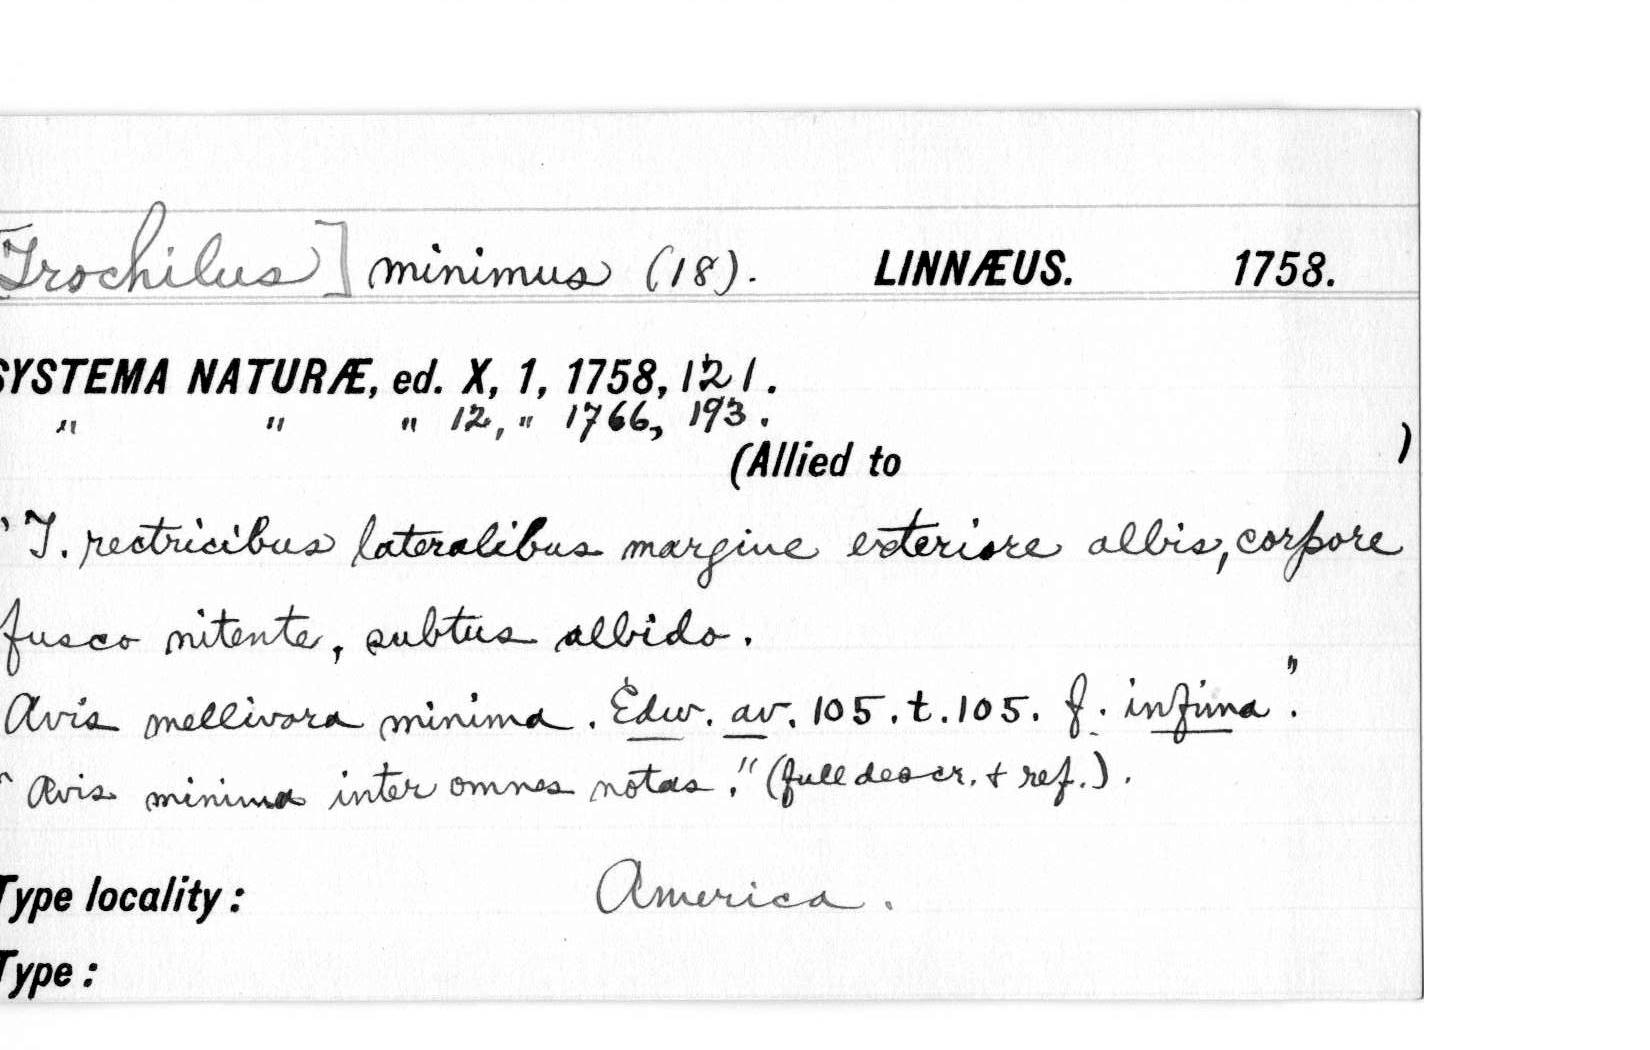 [Trochilus] minimus (18). LINNÆUS. 1758.
SYSTEMA NATURÆ, ed. X, 1, 1758, 121.
" " " 12, " 1766, 193.
(Allied to )
"T. rectricibus lateralibus margine exteriore albis, corpore
fusco nitente, subtus albido.
Avis mellivora minima. Edw. av. 105. t. 105. f. infima".
"Avis minima inter omnes notas." (full descr. & ref.).
Type locality: America.
Type: